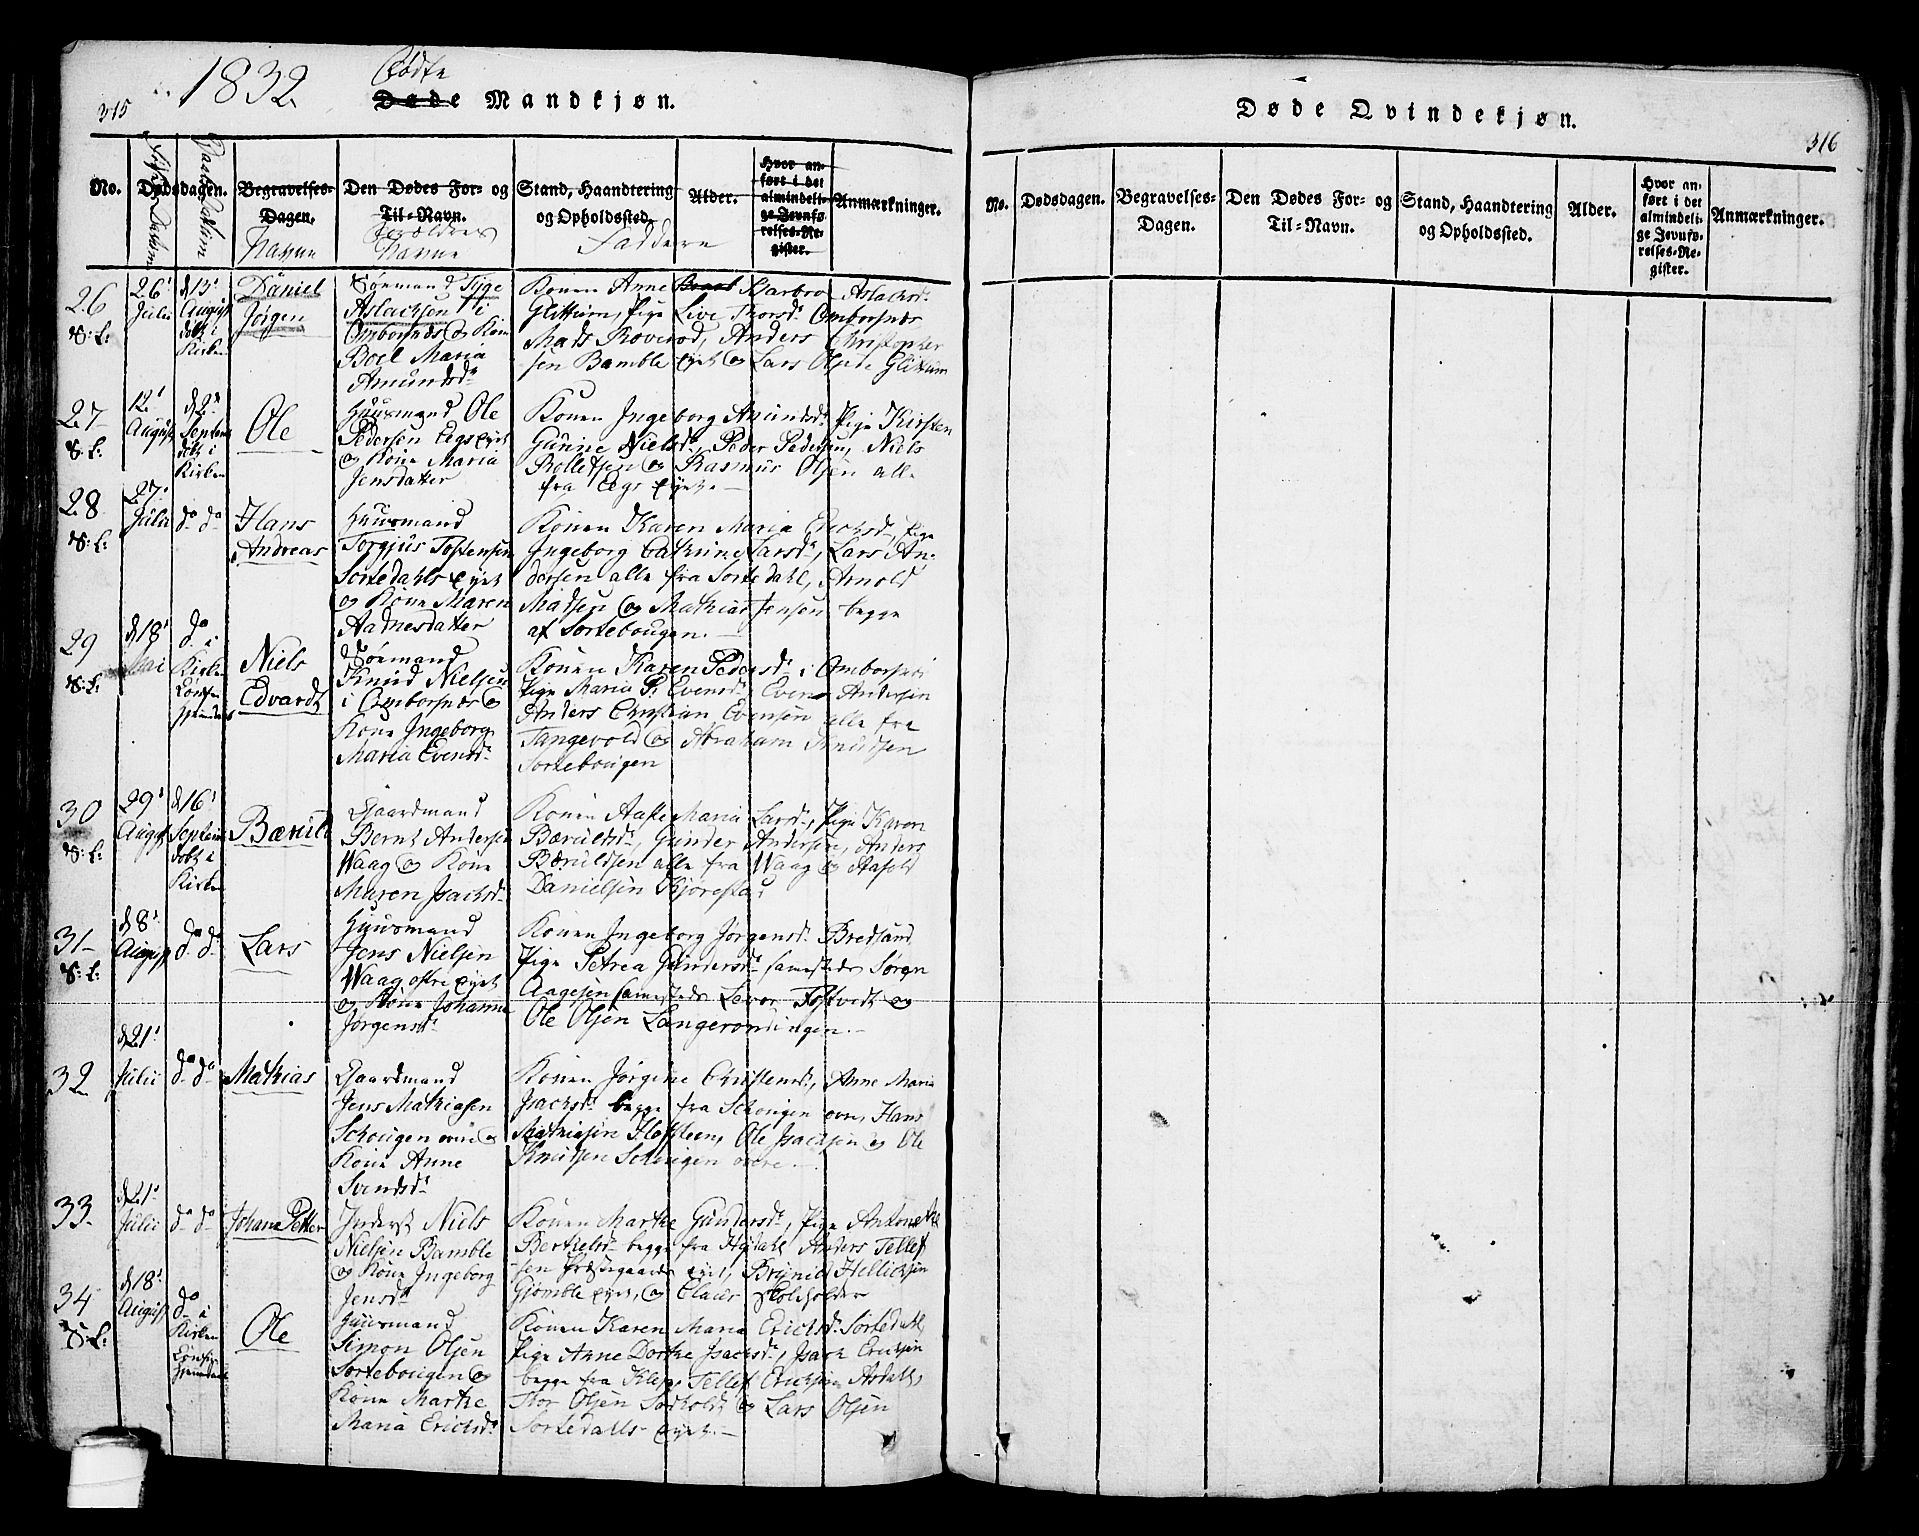 315
1832.
Fødte
Døde Mandkjøn.
No.
Dødsdagen.
Begravelses-
Dagen.
Navne
Den Dødes For- og
Til-Navn.
Forældres
Navne
Stand, Haandtering
og Opholdssted.
Faddere
Alder.
Hvor an-
ført i det
almindeli-
ge Jevnfø-
relses-Re-
gister.
Anmærkninger.
26
S: L:
26'
Julii
d 13'
August
døbt i
Kirken
Daniel
Jørgen
Sømand Tyge
Aslachsen i
Omborsnæs og Kone
Boel Maria
Amundsd:
Konen Anne Barbro Aslachsd:
Glittum, Pige Live Thorsd: Omborsnæs
Mads Roverod, Anders Christopher
sen Bamble eyet og Lars Olsen Glittum
27
S: L:
12'
August
d 2'
Septem
døbt i
Kirken
Ole
Huusmand Ole
Pedersen Eegs eyet
og Kone Maria
Jensdatter
Konen Ingeborg Amundsd: Pige Kirsten
Gurine Nielsd:, Peder Pedersen, Niels
Rollefsen og Rasmus Olsen alle
fra Eegs eyet.—
28
S: L:
27'
Julii
do do
Hans
Andreas
Huusmand
Torgjus Tostensen
Sortedahls eyet
og Kone Maren
Aadnesdatter
Konen Karen Maria Erichsd:, Pige
Ingeborg Cathrine Larsd:, Lars An-
dersen alle fra Sortedahl, Arnold
Madsen og Mathias Jensen begge
af Sortebougen.—
29
S: L:
d 18'
Mai
do i
Kirken
Niels
Edvardt
Sømand
Knud Nielsen
i Omborsnæs og
Kone Ingeborg
Maria Evensd:
Konen Karen Pedersd: i Omborsnæs
Pige Maria P. Evensd:, Even Andersen
Anders Christian Evensen alle fra
Tangevold og Abraham Knudsen
Sortebougen
30
S: L:
29'
August
d 16'
Septem
døbt i
Kirken
Bærult
Gaardmand
Bernt Andersen
Waag og Kone
Maren Isachsd:
Konen Aaste Maria Larsd:, Pige Karen
Bærulsd:, Gunder Andersen, Anders
Bæruldsen alle fra Waag og Aasold
Danielsen Kjørestad
31
S: L:
d 8'
August
do do
Lars
Huusmand
Jens Nielsen
Waag østre eyet
og Kone Johanne
Jørgensd:
Konen Ingeborg Jørgensd: Bredsand
Pige Petrea Gundersd: samesteds Sørgn
Aagesen samesteds Levor Tostvedt og
Ole Olsen Langerondningen.—
32
d 21'
Julii
do do
Mathias
Gaardmand
Jens Mathiasen
Schougen øvre og
Kone Anne
Svendsd:
Konen Jørgine Christensd:, Anne Maria
Isachsd: begge fra Schougen øvre, Hans
Mathiesen Hafsteen, Ole Isachsen og Ole
Knudsen Schougen øvre.—
33.
d 21'
Julii
do do
Johan Petter
Inderst Niels
Nielsen Bamble
og Kone Ingeborg
Jensd:
Konen Marthe Gundersd:, Pige Antonethe
Berthelsd: begge fra Hydahl, Anders Tellef
sen Præstegaards eyet, Brynild Hellichsen
Gjømble eyet, og Claus Skoleholder
34
S: L:
d 18'
August
do i
Kirken
Ole
Huusmand
Simon Olsen
Sortebougen og
Kone Marthe
Maria Erichsd:
Konen Karen Maria Erichsd: Sortedahl
Pige Anne Dorthe Isachsd:, Isach Erichsen
begge fra Klep, Tellef Erichsen Asdahl,
Thor Olsen Sødhold og Lars Olsen
Sortedalls eyet.—
Døde Qvindekjøn.
316
No.
Dødsdagen.
Begravelses-
Dagen.
Den Dødes For- og
Til-Navn.
Stand, Haandtering
og Opholdssted.
Alder.
Hvor an-
ført i det
almindeli-
ge Jevnfø-
relses-Re-
gister.
Anmærkninger.